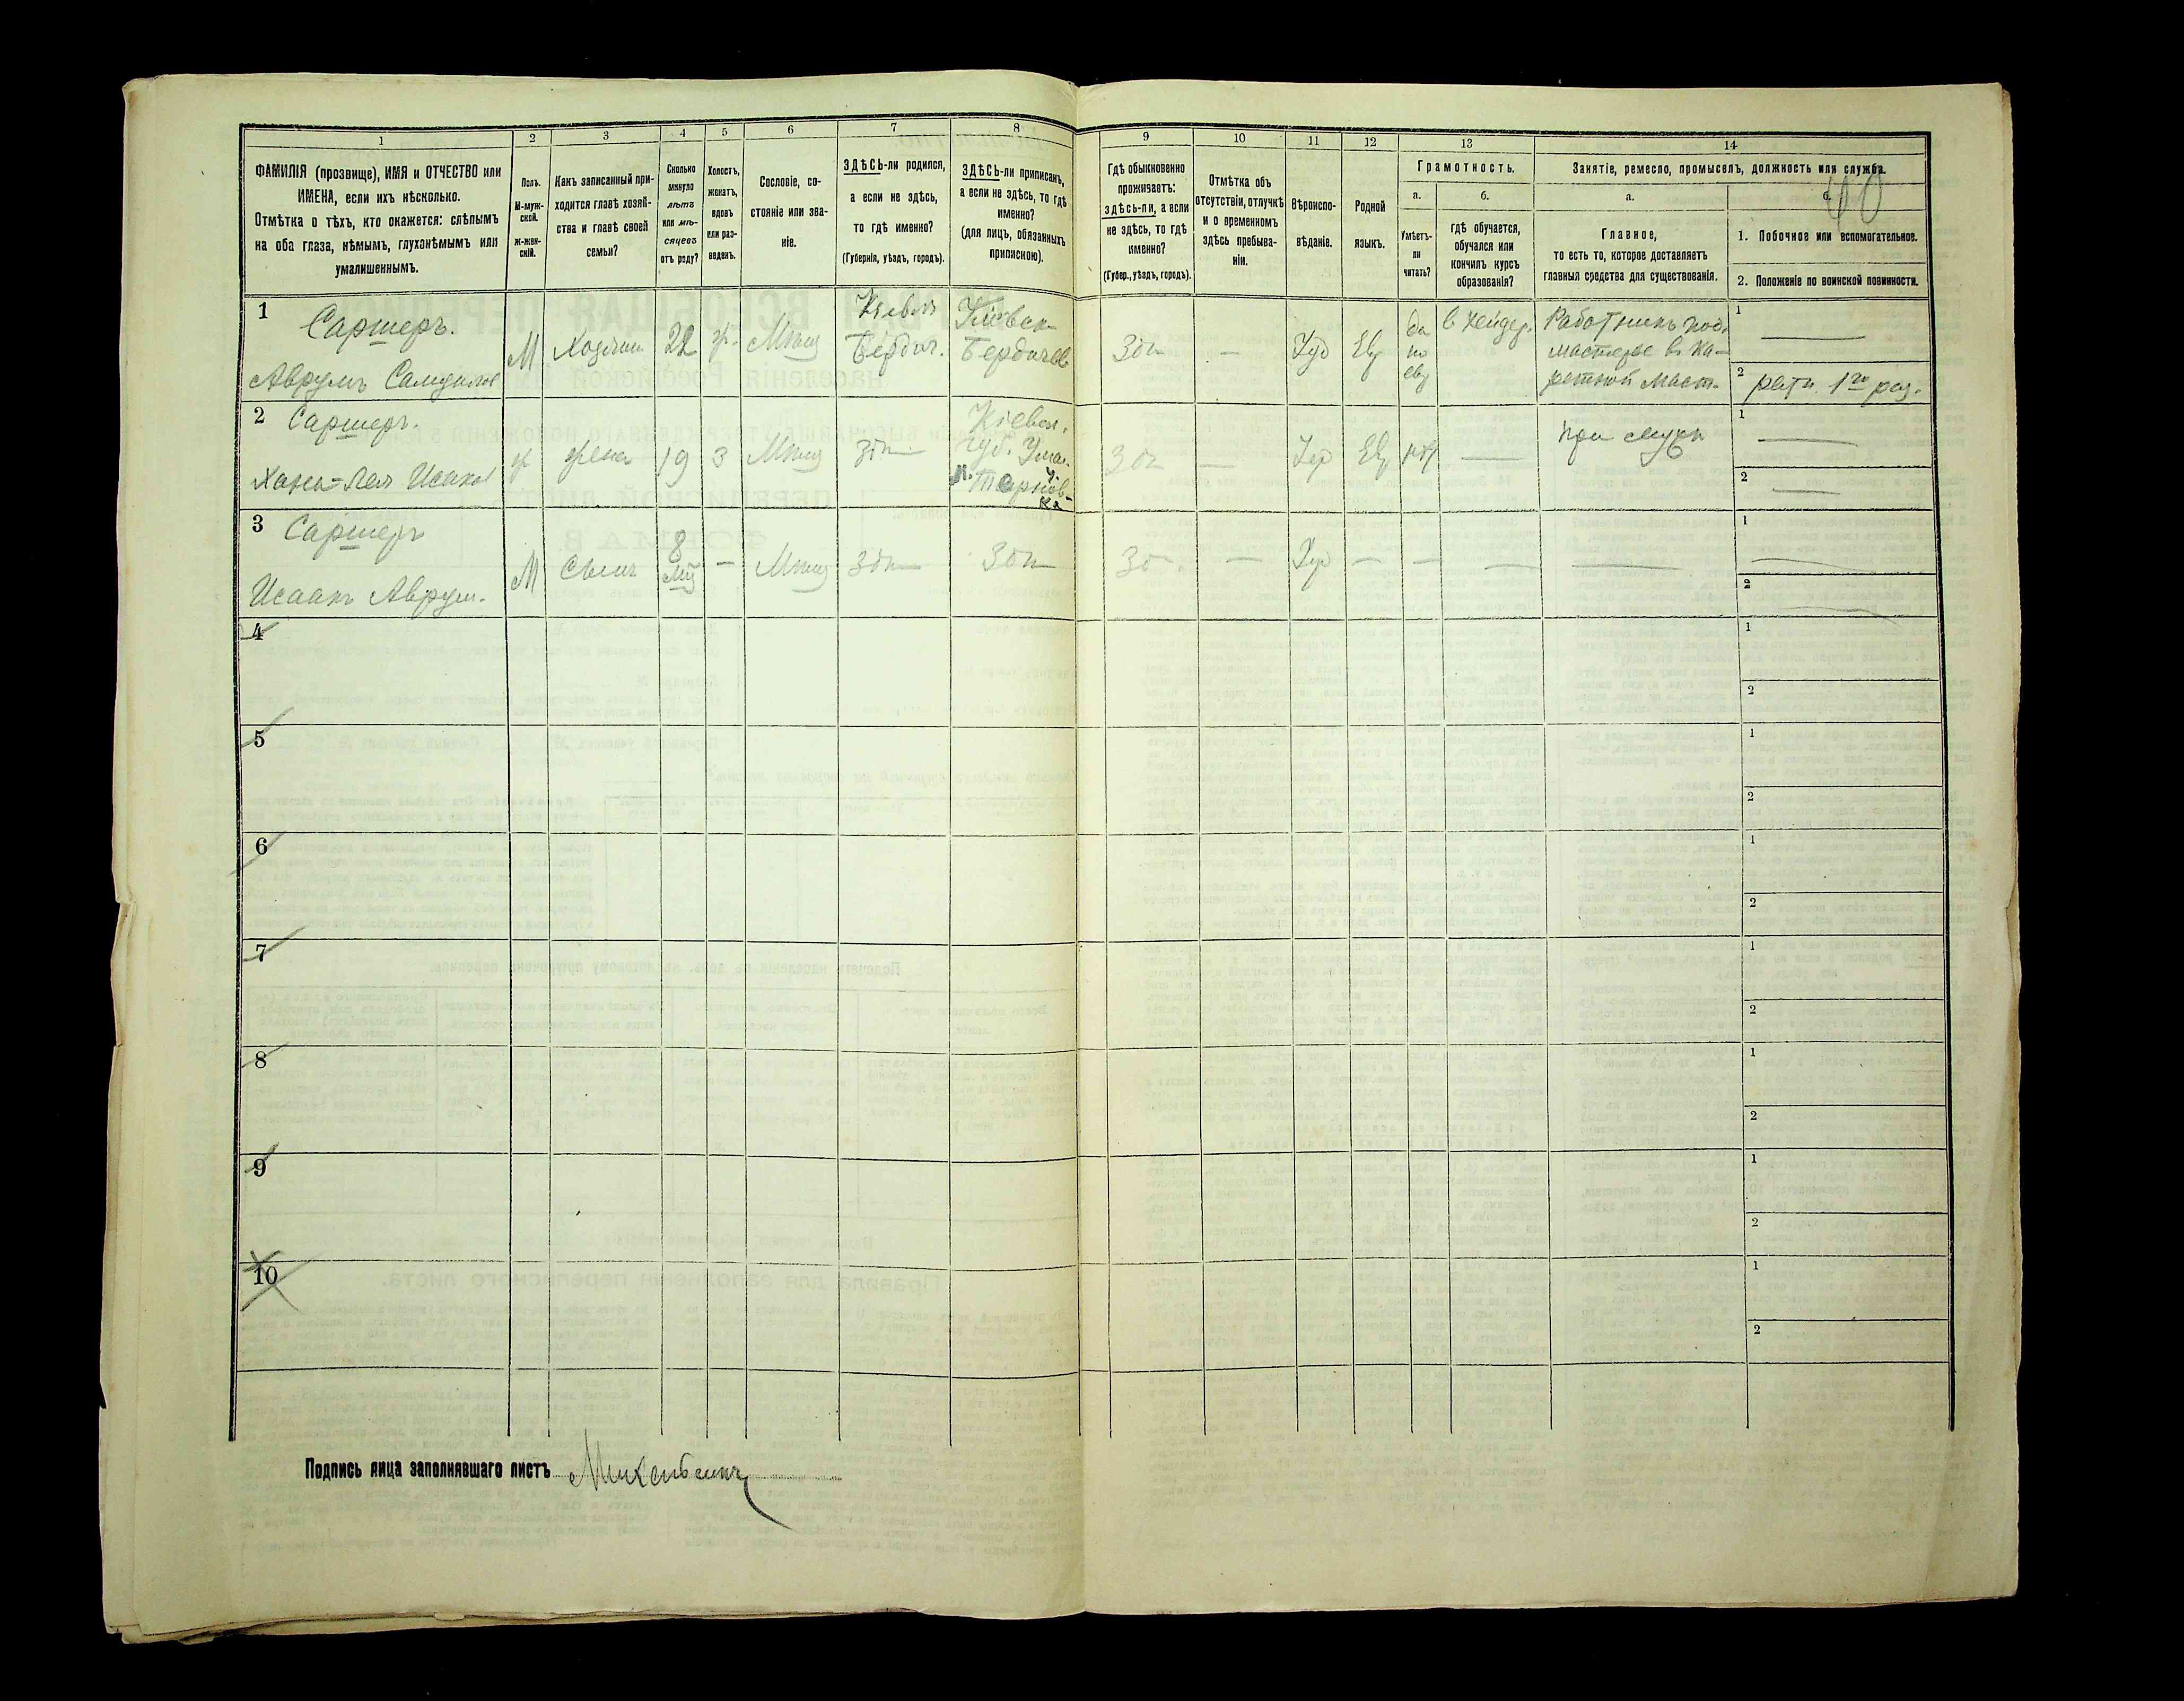 1
2
3
4
5
6
7
8
9
10
11
12
13
14
ФАМИЛІЯ (прозвище), ИМЯ и ОТЧЕСТВО или
ИМЕНА, если ихъ нѣсколько.
Отмѣтка о тѣхъ, кто окажется: слѣпымъ
на оба глаза, нѣмымъ, глухонѣмымъ или
умалишеннымъ.
Полъ.
М-муж-
ской.
Ж-жен-
скій.
Какъ записанный при-
ходится главѣ хозяй-
ства и главѣ своей
семьи?
Сколько
минуло
лѣтъ
или мѣ-
сяцевъ
отъ роду?
Холостъ,
женатъ,
вдовъ
или раз-
веденъ.
Сословіе, со-
стояніе или зва-
ніе.
ЗДѢСЬ-ли родился,
а если не здѣсь,
то гдѣ именно?
(Губернія, уѣздъ, городъ).
ЗДѢСЬ-ли приписанъ,
а если не здѣсь, то гдѣ
именно?
(для лицъ, обязанныхъ
припискою).
Гдѣ обыкновенно
проживаетъ:
здѣсь-ли, а если
не здѣсь, то гдѣ
именно?
(Губер., уѣздъ, городъ).
Отмѣтка объ
отсутствіи, отлучкѣ
и о временномъ
здѣсь пребыва-
ніи.
Вѣроиспо-
вѣданіе.
Родной
языкъ.
Грамотность.
а.
Умѣетъ-
ли
читать?
б.
гдѣ обучается,
обучался или
кончилъ курсъ
образованія?
Занятіе, ремесло, промыселъ, должность или служба.
а.
Главное,
то есть то, которое доставляетъ
главныя средства для существованія.
б.
1. Побочное или вспомогательное.
2. Положеніе по воинской повинности.
1
Саршеръ.
Аврумъ
М
Хозяинъ
22
ж.
Мѣщ
Кіевск
Бердич.
Кіевск-
Бердичев
Здѣ
—
Іуд
Евр
да
по
евр
в хейдер.
Работникъ под.
мастерье в ка-
ретной маст.
1
—
2
ратн. 1го раз.
2 Саршеръ.
Хана-Лея Исаков
ж
жена
19
З
Мѣщ
Здѣ
Кіевск.
губ. Уман.
у.
м. Тарнов-
ка
Здѣ
—
Іуд
Евр
нѣт
—
при мужѣ
1
—
2
—
3 Саршеръ
Исаакъ Аврум.
М
Сынъ
8
мц
—
Мѣщ
Здѣ
Здѣ
Зд.
—
Іуд
—
—
—
—
1
—
2
4
1
2
5
1
2
6
1
2
7
1
2
8
1
2
9
1
2
10
1
2
Подпись лица заполнявшаго листъ